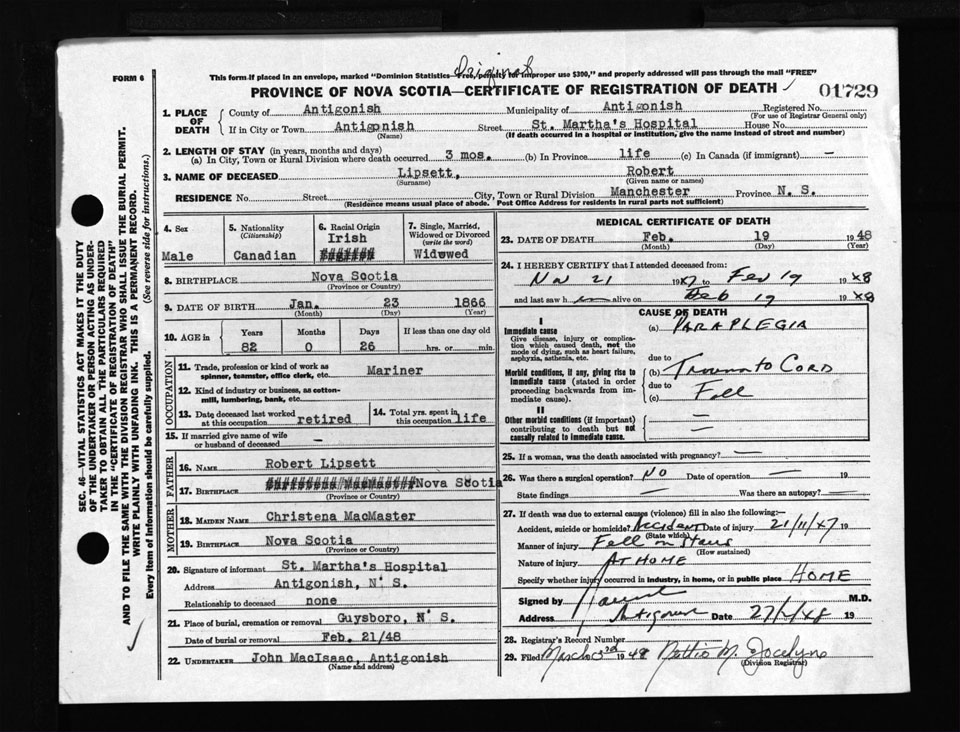 Original
FORM 6
This form if placed in an envelope, marked "Dominion Statistics—Free, penalty for improper use $300," and properly addressed will pass through the mail "FREE"
PROVINCE OF NOVA SCOTIA—CERTIFICATE OF REGISTRATION OF DEATH
01729
1. PLACE OF DEATH
County of Antigonish Municipality of Antigonish Registered No.
(For use of Registrar General only)
If in City or Town Antigonish Street St. Martha's Hospital House No.
(Name) (If death occurred in a hospital or institution, give the name instead of street and number)
2. LENGTH OF STAY (in years, months and days)
(a) In City, Town or Rural Division where death occurred 3 mos. (b) In Province life (c) In Canada (if immigrant) —
3. NAME OF DECEASED Lipsett, Robert
(Surname) (Given name or names)
RESIDENCE No. Street City, Town or Rural Division Manchester Province N. S.
(Residence means usual place of abode. Post Office Address for residents in rural parts not sufficient)
SEC. 46—VITAL STATISTICS ACT MAKES IT THE DUTY
OF THE UNDERTAKER OR PERSON ACTING AS UNDER-
TAKER TO OBTAIN ALL THE PARTICULARS REQUIRED
IN THE "CERTIFICATE OF REGISTRATION OF DEATH"
AND TO FILE THE SAME WITH THE DIVISION REGISTRAR WHO SHALL ISSUE THE BURIAL PERMIT.
WRITE PLAINLY WITH UNFADING INK. THIS IS A PERMANENT RECORD.
Every item of information should be carefully supplied. (See reverse side for instructions.)
4. Sex
Male
5. Nationality
(Citizenship)
Canadian
6. Racial Origin
Irish
7. Single, Married,
Widowed or Divorced
(write the word)
Widowed
8. BIRTHPLACE Nova Scotia
(Province or Country)
9. DATE OF BIRTH Jan. 23 1866
(Month) (Day) (Year)
10. AGE in Years Months Days If less than one day old
82 0 26 hrs. or min.
OCCUPATION
11. Trade, profession or kind of work as
spinner, teamster, office clerk, etc. Mariner
12. Kind of industry or business, as cotton-
mill, lumbering, bank, etc.
13. Date deceased last worked
at this occupation retired
14. Total yrs. spent in
this occupation life
15. If married give name of wife
or husband of deceased —
FATHER
16. NAME Robert Lipsett
17. BIRTHPLACE Nova Scotia
(Province or Country)
MOTHER
18. MAIDEN NAME Christena MacMaster
19. BIRTHPLACE Nova Scotia
(Province or Country)
20. Signature of informant St. Martha's Hospital
Address Antigonish, N. S.
Relationship to deceased none
21. Place of burial, cremation or removal Guysboro, N. S.
Date of burial or removal Feb. 21/48
22. UNDERTAKER John MacIsaac, Antigonish
(Name and address)
MEDICAL CERTIFICATE OF DEATH
23. DATE OF DEATH Feb. 19 1948
(Month) (Day) (Year)
24. I HEREBY CERTIFY that I attended deceased from:
Nov 21 1947 to Feb 19 1948
and last saw him alive on Feb 19 1948
CAUSE OF DEATH
I
Immediate cause
Give disease, injury or complica-
tion which caused death, not the
mode of dying, such as heart failure,
asphyxia, asthenia, etc.
(a) PARAPLEGIA
due to
Morbid conditions, if any, giving rise to
immediate cause (stated in order
proceeding backwards from im-
mediate cause).
(b) Trauma to Cord
due to
(c) Fall
II
Other morbid conditions (if important)
contributing to death but not
causally related to immediate cause.
25. If a woman, was the death associated with pregnancy? —
26. Was there a surgical operation? NO Date of operation — 19
State findings — Was there an autopsy? —
27. If death due to external causes (violence) fill in also the following:—
Accident, suicide or homicide? Accident Date of injury 21/11/47 19
(State which)
Manner of injury Fell on Stairs
(How sustained)
Nature of injury AT HOME
Specify whether injury occurred in industry, in home, or in public place HOME
Signed by M.D.
Address Antigonish Date 19
28. Registrar's Record Number
29. Filed March 3rd 1948 Nettie M. Jocelyne
(Division Registrar)